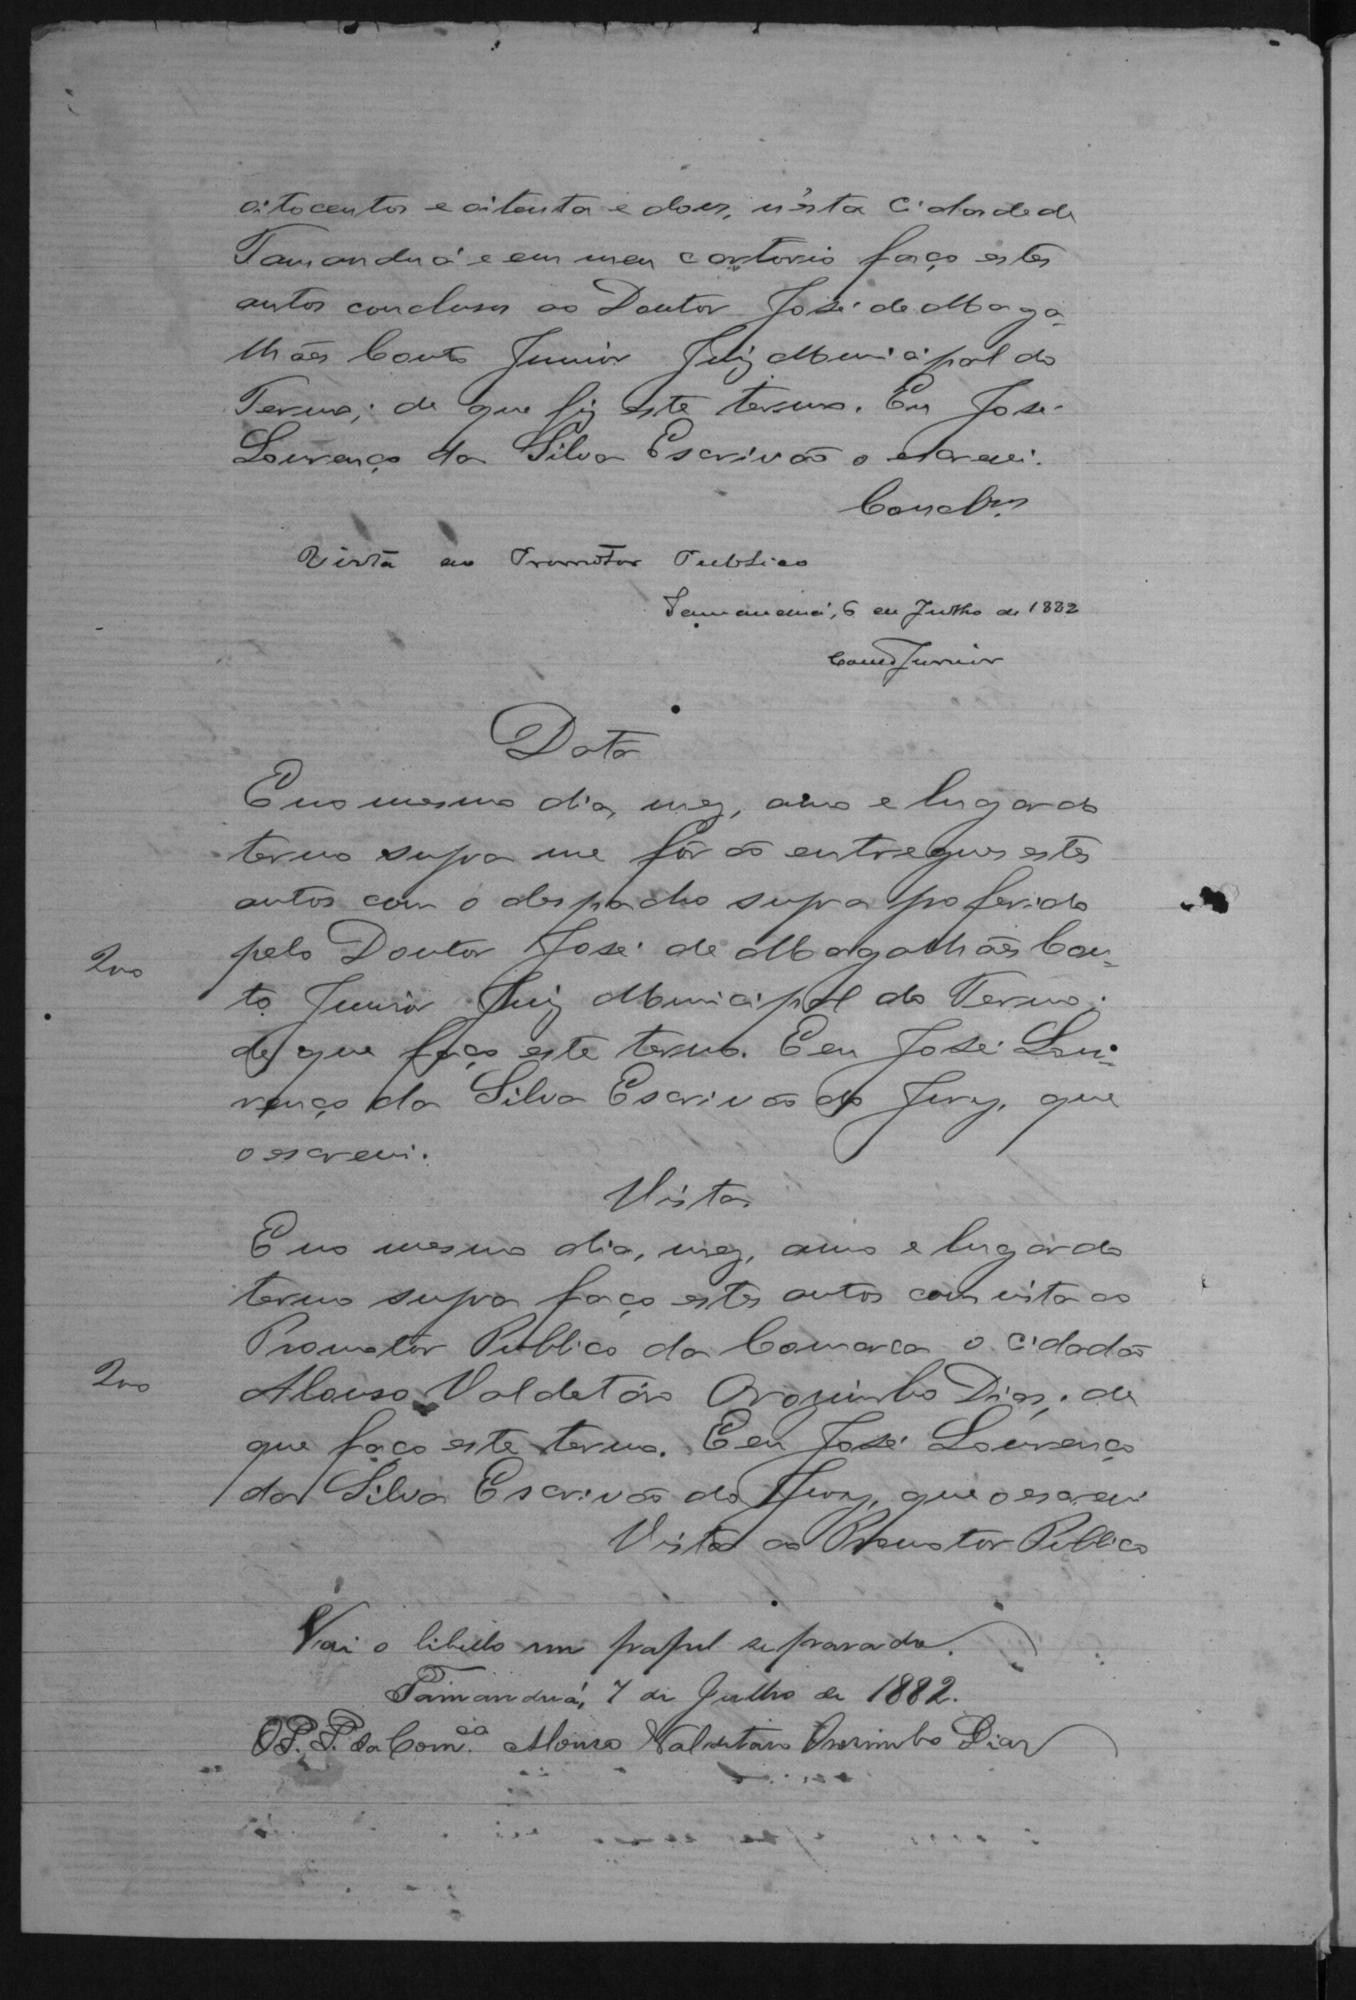 oitocentos e oitenta e dous, n'esta Cidade de
Tamanduá e em meu cartorio faço estes
autos conclusos ao Doutor José de Maga-
lhães Couto Junior Juiz Municipal do
Termo; de que fiz este termo. Eu José
Lourenço da Silva Escrivão o escrevi.
Concl.os
Vista ao Promotor Publico
Tamanduá, 6 de Julho de 1882
Couto Junior
Data
E no mesmo dia, mez, anno e lugar do
termo supra me forão entregues estes
autos com o despacho supra proferido
pelo Doutor José de Magalhães Cou-
200
to Junior Juiz Municipal do Termo;
de que faço este termo. E eu José Lou-
renço da Silva Escrivão do Jury, que
o escrevi.
Vista
E no mesmo dia, mez, anno e lugar do
termo supra faço estes autos com vista ao
Promotor Publico da Comarca o cidadão
200
Alonso Valdetáro Orozimbo Dias; de
que faço este termo. E eu José Lourenço
da Silva Escrivão do Jury, que o escrevi
Vista ao Promotor Publico
Vai o libello em papel separado.
Tamanduá, 7 de Julho de 1882.
O P. P. da Com.ca Alonso Valdetaro Orozimbo Dias